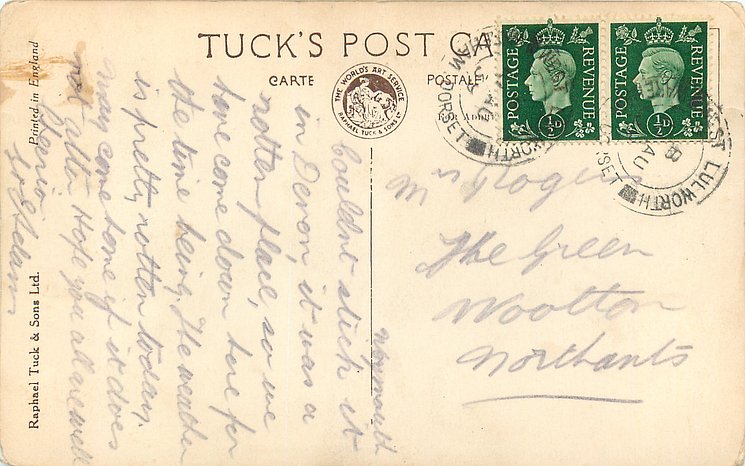 TUCK'S POST CA
CARTE
POSTALE
THE WORLD'S ART SERVICE
RAPHAEL TUCK & SONS LTD
FOR ADDR
POSTAGE
REVENUE
½D
POSTAGE
REVENUE
½D
WEST LULWORTH
DORSET
8
AU
WEST LULWORTH
Printed in England
Raphael Tuck & Sons Ltd.
Weymouth
Couldnt stick it
in Devon it was a
rotten place, so we
have come down here for
the time being. The weather
is pretty rotten today.
may come home if it does
not alter. Hope you all are well
Mrs Rogers
The Green
Woolton
Northants